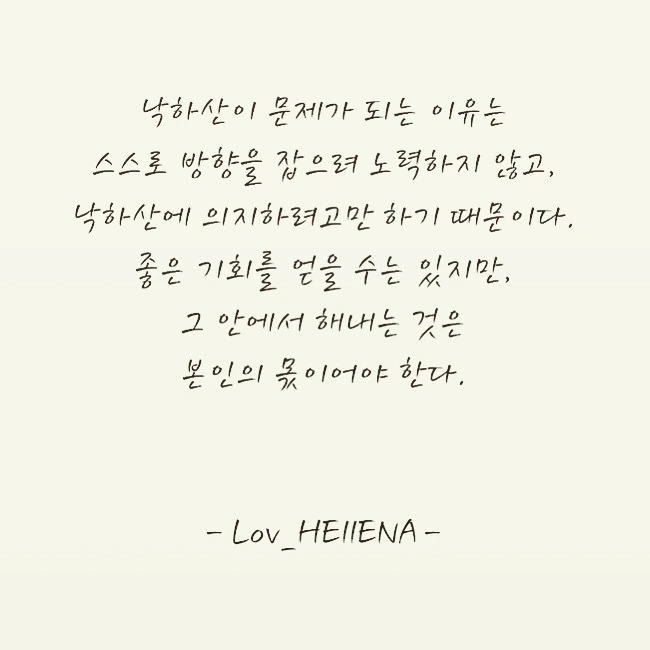 낙하산이 문제가 되는 이유는
스스로 방향을 잡으려 노력하지 않고,
낙하산에 의지하려고만 하기 때문이다.
좋은 기회를 얻을 수는 있지만,
그 안에서 해내는 것은
본인의 몫이어야 한다.
- Lov_HEllENA -